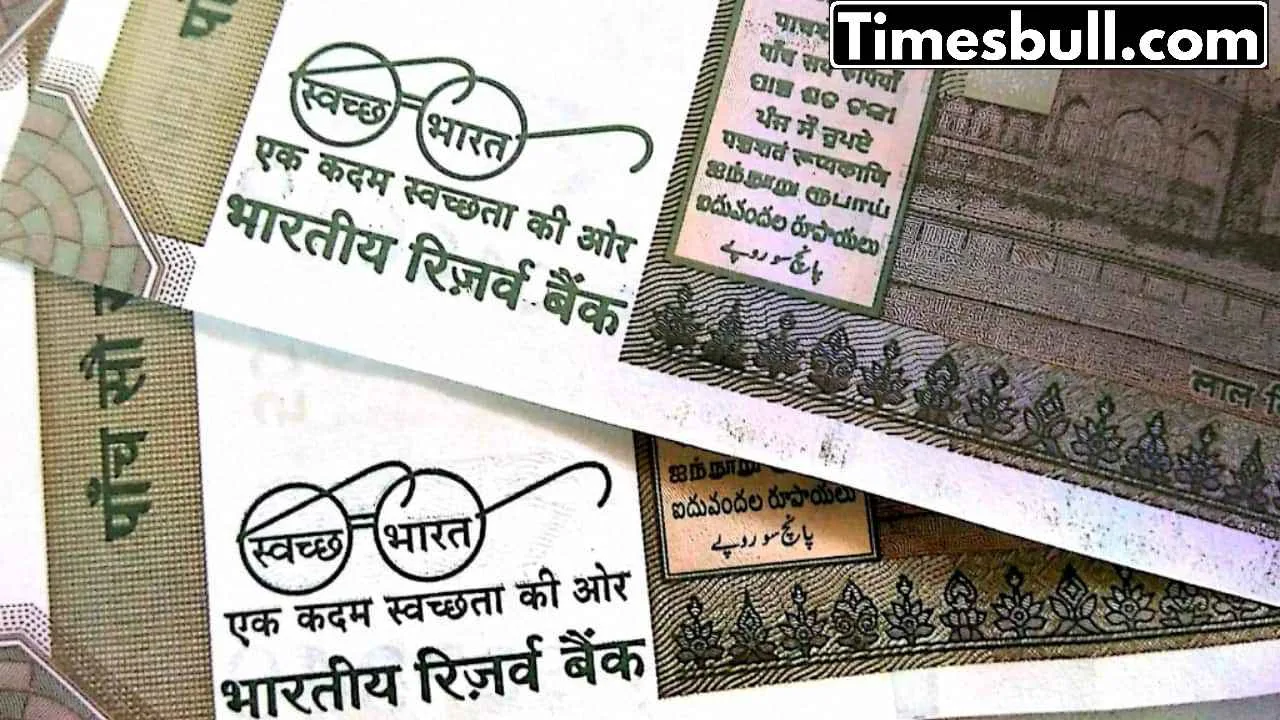 Timesbull.com
स्वच्छ भारत
एक कदम स्वच्छता की ओर
भारतीय रिज़र्व बैंक
पाँच सय रुपियाँ
ପାଞ୍ଚ ଶତ ଟଙ୍କା
ਪੰਜ ਸੌ ਰੁਪਏ
पञ्चशतं रूप्यकाणि
ஐந்நூறு ரூபாய்
ఐదువందల రూపాయలు
پانچ سو روپے
लाल
पांच सौ
स्वच्छ भारत
एक कदम स्वच्छता की ओर
भारतीय रिज़र्व बैंक
ஐந்நூறு
ఐదువందల రూపాయలు
پانچ سو روپے